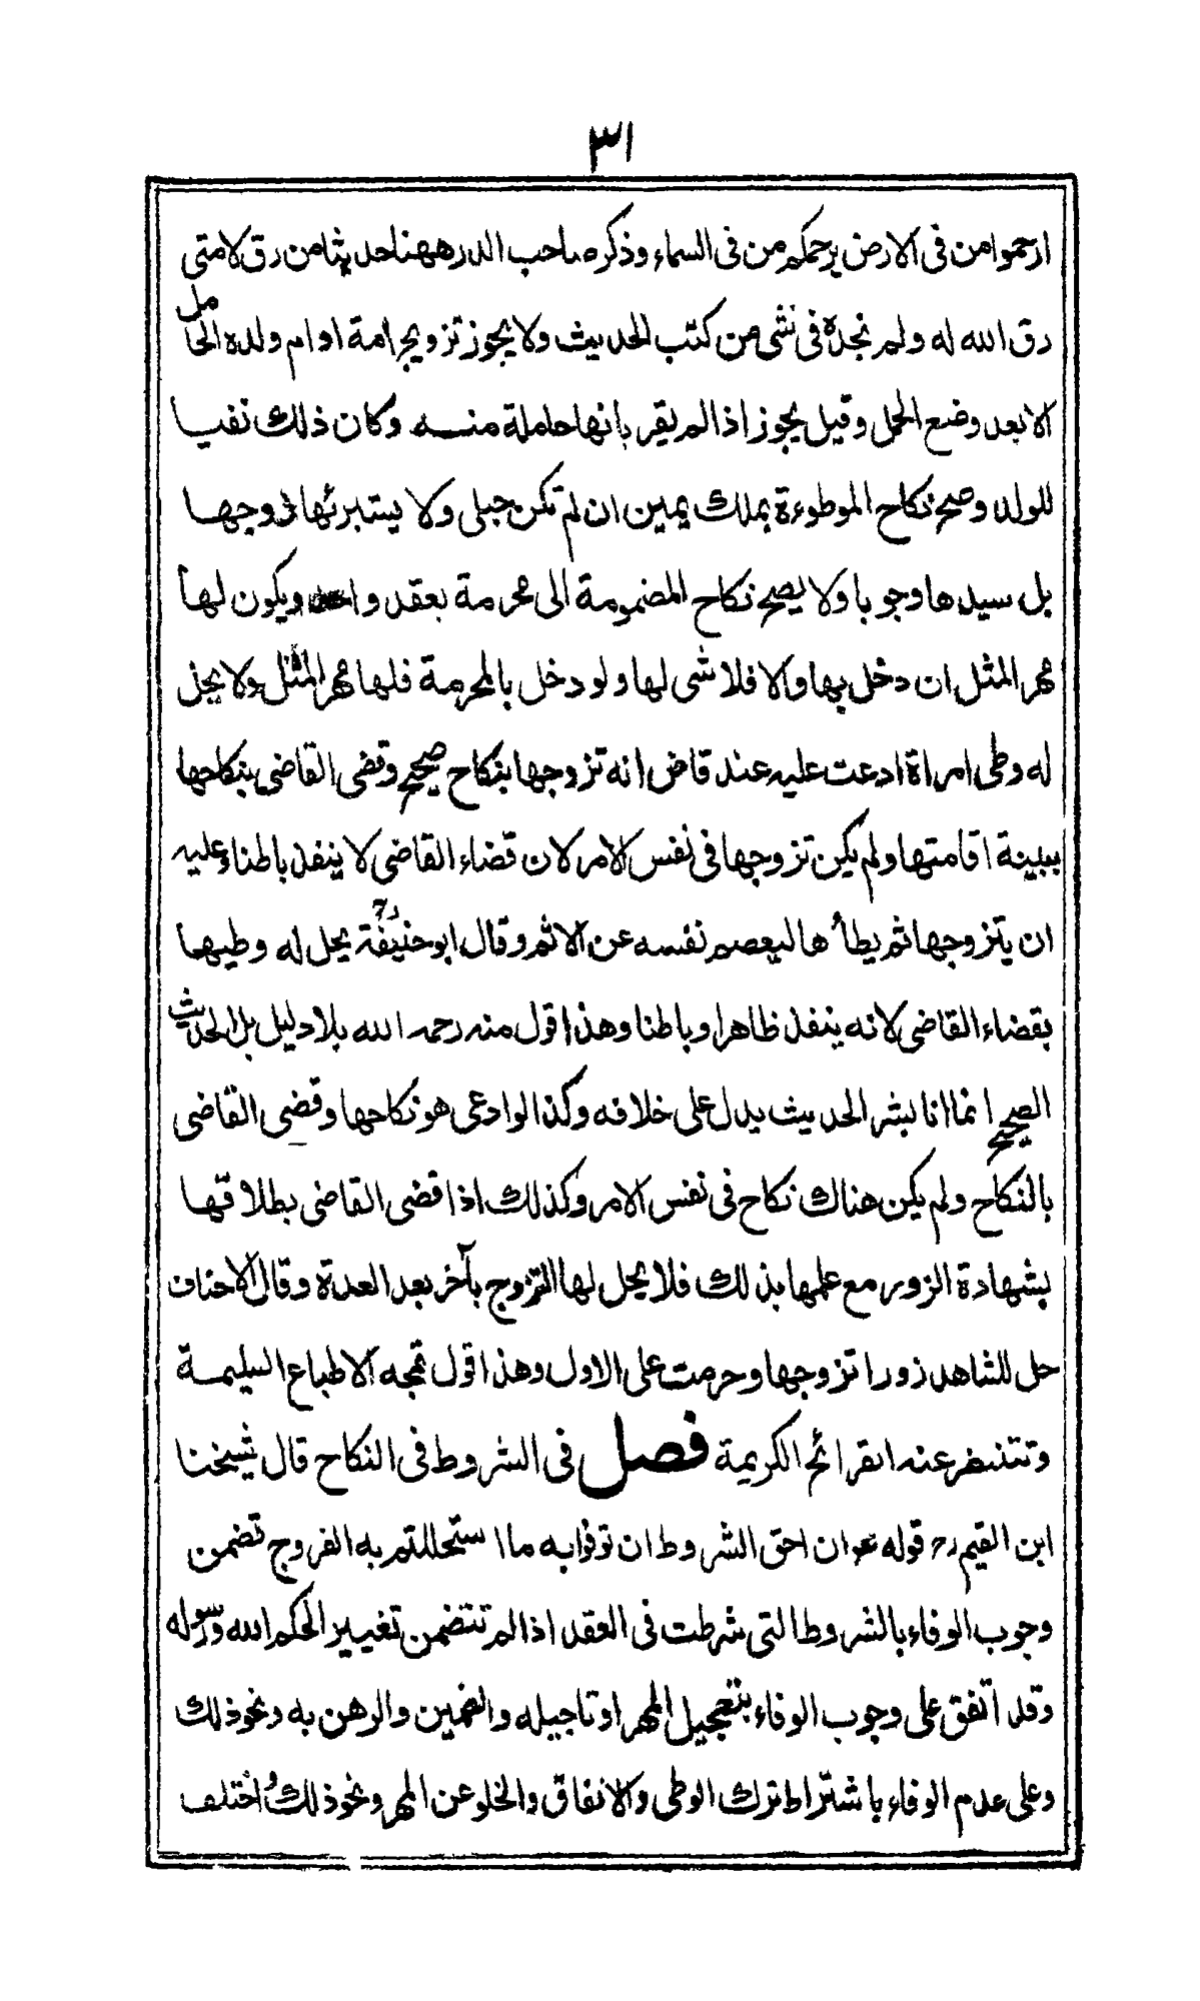 ٣١
ارحموا من فى الارض يرحمكم من فى السماء وذكره صاحب الدر ههنا حديثا من رق لامتى
رق الله له ولم نجده فى شى من كتب الحديث ولا يجوز تزويج امة او ام ولده الحامل
الا بعد وضع الحمل وقيل يجوز اذا لم يقر بانها حاملة منه وكان ذلك نفيا
للولد وصح نكاح الموطوءة بملك يمين ان لم تكن حبلى ولا يستبرئها زوجها
بل سيدها وجوبا ولا يصح نكاح المضمومة الى محرمة بعقد واحد ويكون لها
مهر المثل ان دخل بها والا فلا شى لها ولو دخل بالمحرمة فلها مهر المثل ولا يحل
له وطى امراة ادعت عليه عند قاض انه تزوجها بنكاح صحيح وقضى القاضى بنكاحها
ببينة اقامتها ولم يكن تزوجها فى نفس الامر لان قضاء القاضى لا ينفذ باطناء وعليه
ان يتزوجها ثم يطأها ليعصم نفسه عن الاثم وقال ابو حنيفة رح يحل له وطيها
بقضاء القاضى لانه ينفذ ظاهرا وباطنا وهذا قول منه رحمه الله بلا دليل بل الحديث
الصحيح انما انا بشر الحديث يدل على خلافه وكذا لو ادعى هو نكاحها وقضى القاضى
بالنكاح ولم يكن هناك نكاح فى نفس الامر وكذلك اذا قضى القاضى بطلاقها
بشهادة الزور مع علمها بذلك فلا يحل لها التزوج بآخر بعد العدة وقال الاحناف
حل للشاهد زورا تزوجها وحرمت على الاول وهذا قول تمجه الاطباع السليمة
وتتنفر عنه القرائح الكريمة فصل فى الشروط فى النكاح قال شيخنا
ابن القيم رح قوله ان احق الشروط ان توفوا به ما استحللتم به الفروج تضمن
وجوب الوفاء بالشروط التى شرطت فى العقد اذا لم تتضمن تغيير الحكم الله ورسوله
وقد اتفق على وجوب الوفاء بتعجيل المهر او تاجيله والضمين والرهن به ونحو ذلك
وعلى عدم الوفاء باشتراط ترك الوطى والانفاق والخلو عن المهر ونحو ذلك واختلف